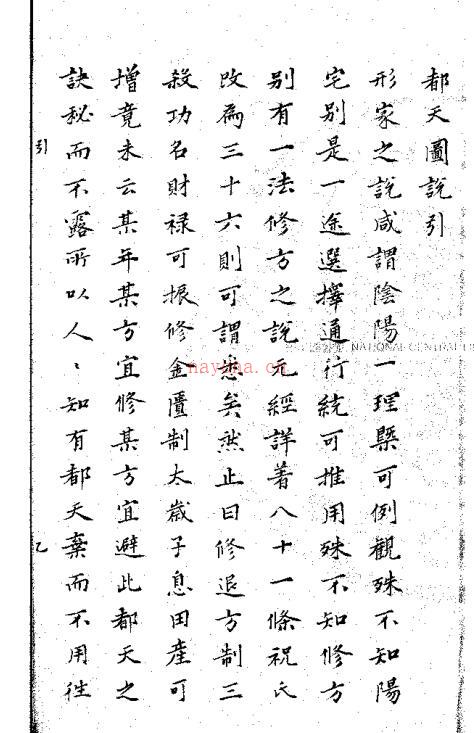 都天圖說引
形家之說咸謂陰陽一理槩可例觀殊不知陽
宅別是一途選擇通行統可推用殊不知修方
別有一法修方之說元經詳著八十一條祝氏
改為三十六則可謂悉矣然止曰修退方制三
殺功名財祿可振修金匱制太歲子息田產可
增竟未云某年某方宜修某方宜避此都天之
訣秘而不露所以人〻知有都天棄而不用徃
引
乙
NATIONAL CENTRAL
nayona.cn